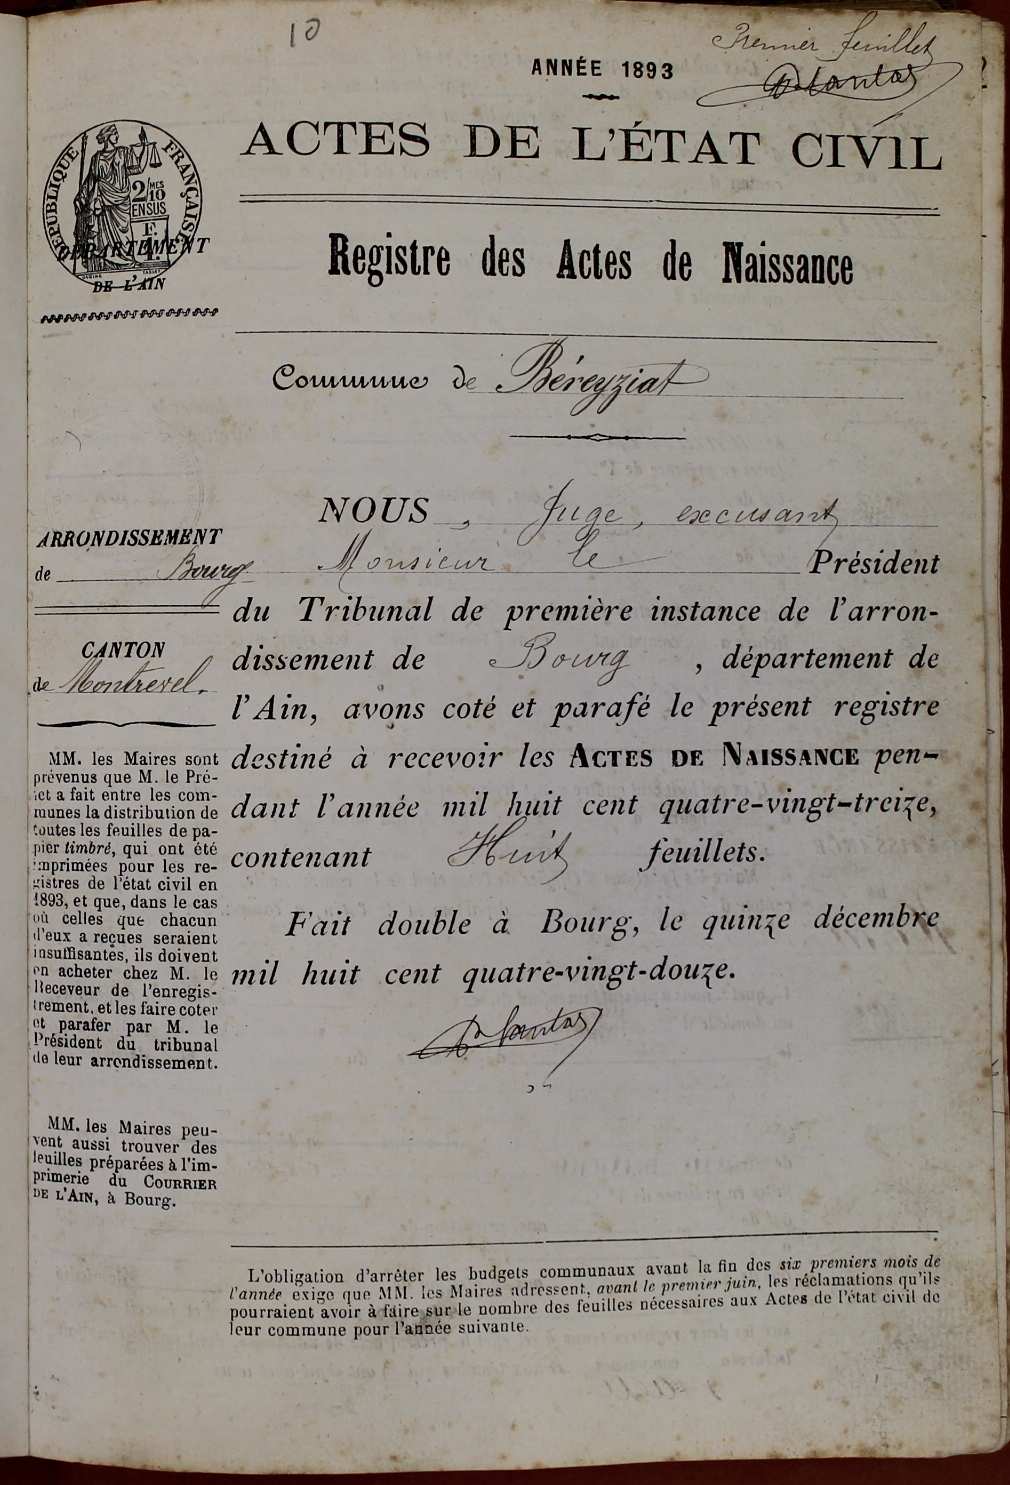 10
Premier feuillet
ANNÉE 1893
ACTES DE L'ÉTAT CIVIL
RÉPUBLIQUE FRANÇAISE
2/10MES
EN SUS
DÉPARTEMENT
DE L'AIN
Registre des Actes de Naissance
Commune de Béreyziat
ARRONDISSEMENT
de Bourg
CANTON
de Montrevel.
MM. les Maires sont
prévenus que M. le Pré-
fet a fait entre les com-
munes la distribution de
toutes les feuilles de pa-
pier timbré, qui ont été
imprimées pour les re-
gistres de l'état civil en
1893, et que, dans le cas
où celles que chacun
d'eux a reçues seraient
insuffisantes, ils doivent
en acheter chez M. le
Receveur de l'enregis-
trement, et les faire coter
et parafer par M. le
Président du tribunal
de leur arrondissement.
MM. les Maires peu-
vent aussi trouver des
feuilles préparées à l'im-
primerie du COURRIER
DE L'AIN, à Bourg.
NOUS, Juge, excusant
Monsieur le Président
du Tribunal de première instance de l'arron-
dissement de Bourg, département de
l'Ain, avons coté et parafé le présent registre
destiné à recevoir les ACTES DE NAISSANCE pen-
dant l'année mil huit cent quatre-vingt-treize,
contenant Huit feuillets.
Fait double à Bourg, le quinze décembre
mil huit cent quatre-vingt-douze.
L'obligation d'arrêter les budgets communaux avant la fin des six premiers mois de
l'année exige que MM. les Maires adressent, avant le premier juin, les réclamations qu'ils
pourraient avoir à faire sur le nombre des feuilles nécessaires aux Actes de l'état civil de
leur commune pour l'année suivante.